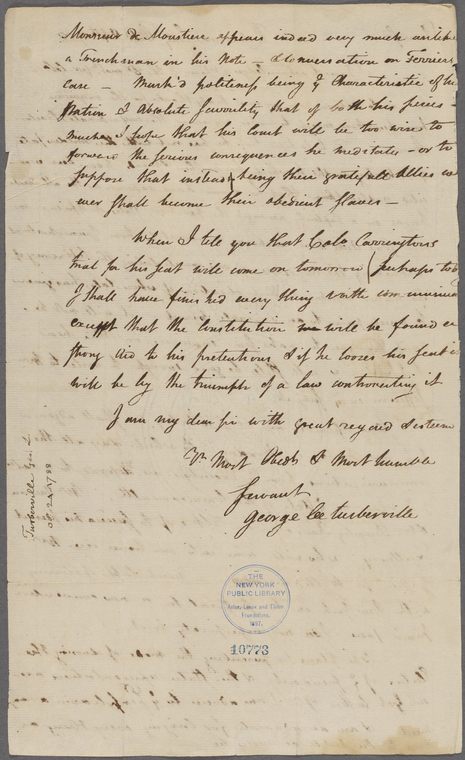 Monsieur de Moustier appears indeed very much unlike
a Frenchman in his Note - & Conversation on Ferriers
case - Mark'd politeness being ye Characteristic of the
Nation & Absolute that of both his pieces -
much I hope that his Court will be too wise to
forward the serious consequences he meditates - or to
suppose that instead being their gratefull Allies we
ever shall become their obedient slaves -
When I tell you that Colo Carringtons
trial for his seat will come on tomorrow (perhaps too
I shall have finished every thing worth
except that the Constitution will be found a
strong aid to his pretentions & if he looses his seat it
will be by the triumph of a law controverting it
I am my dear sir with great regard & esteem
Yr Most Obedt & Most humble
Servant
George Lee turberville
Turberville Geo: L.
oc. 24 1788
THE
NEW YORK
PUBLIC LIBRARY
Astor, Lenox and Tilden
Foundations,
1897.
10773